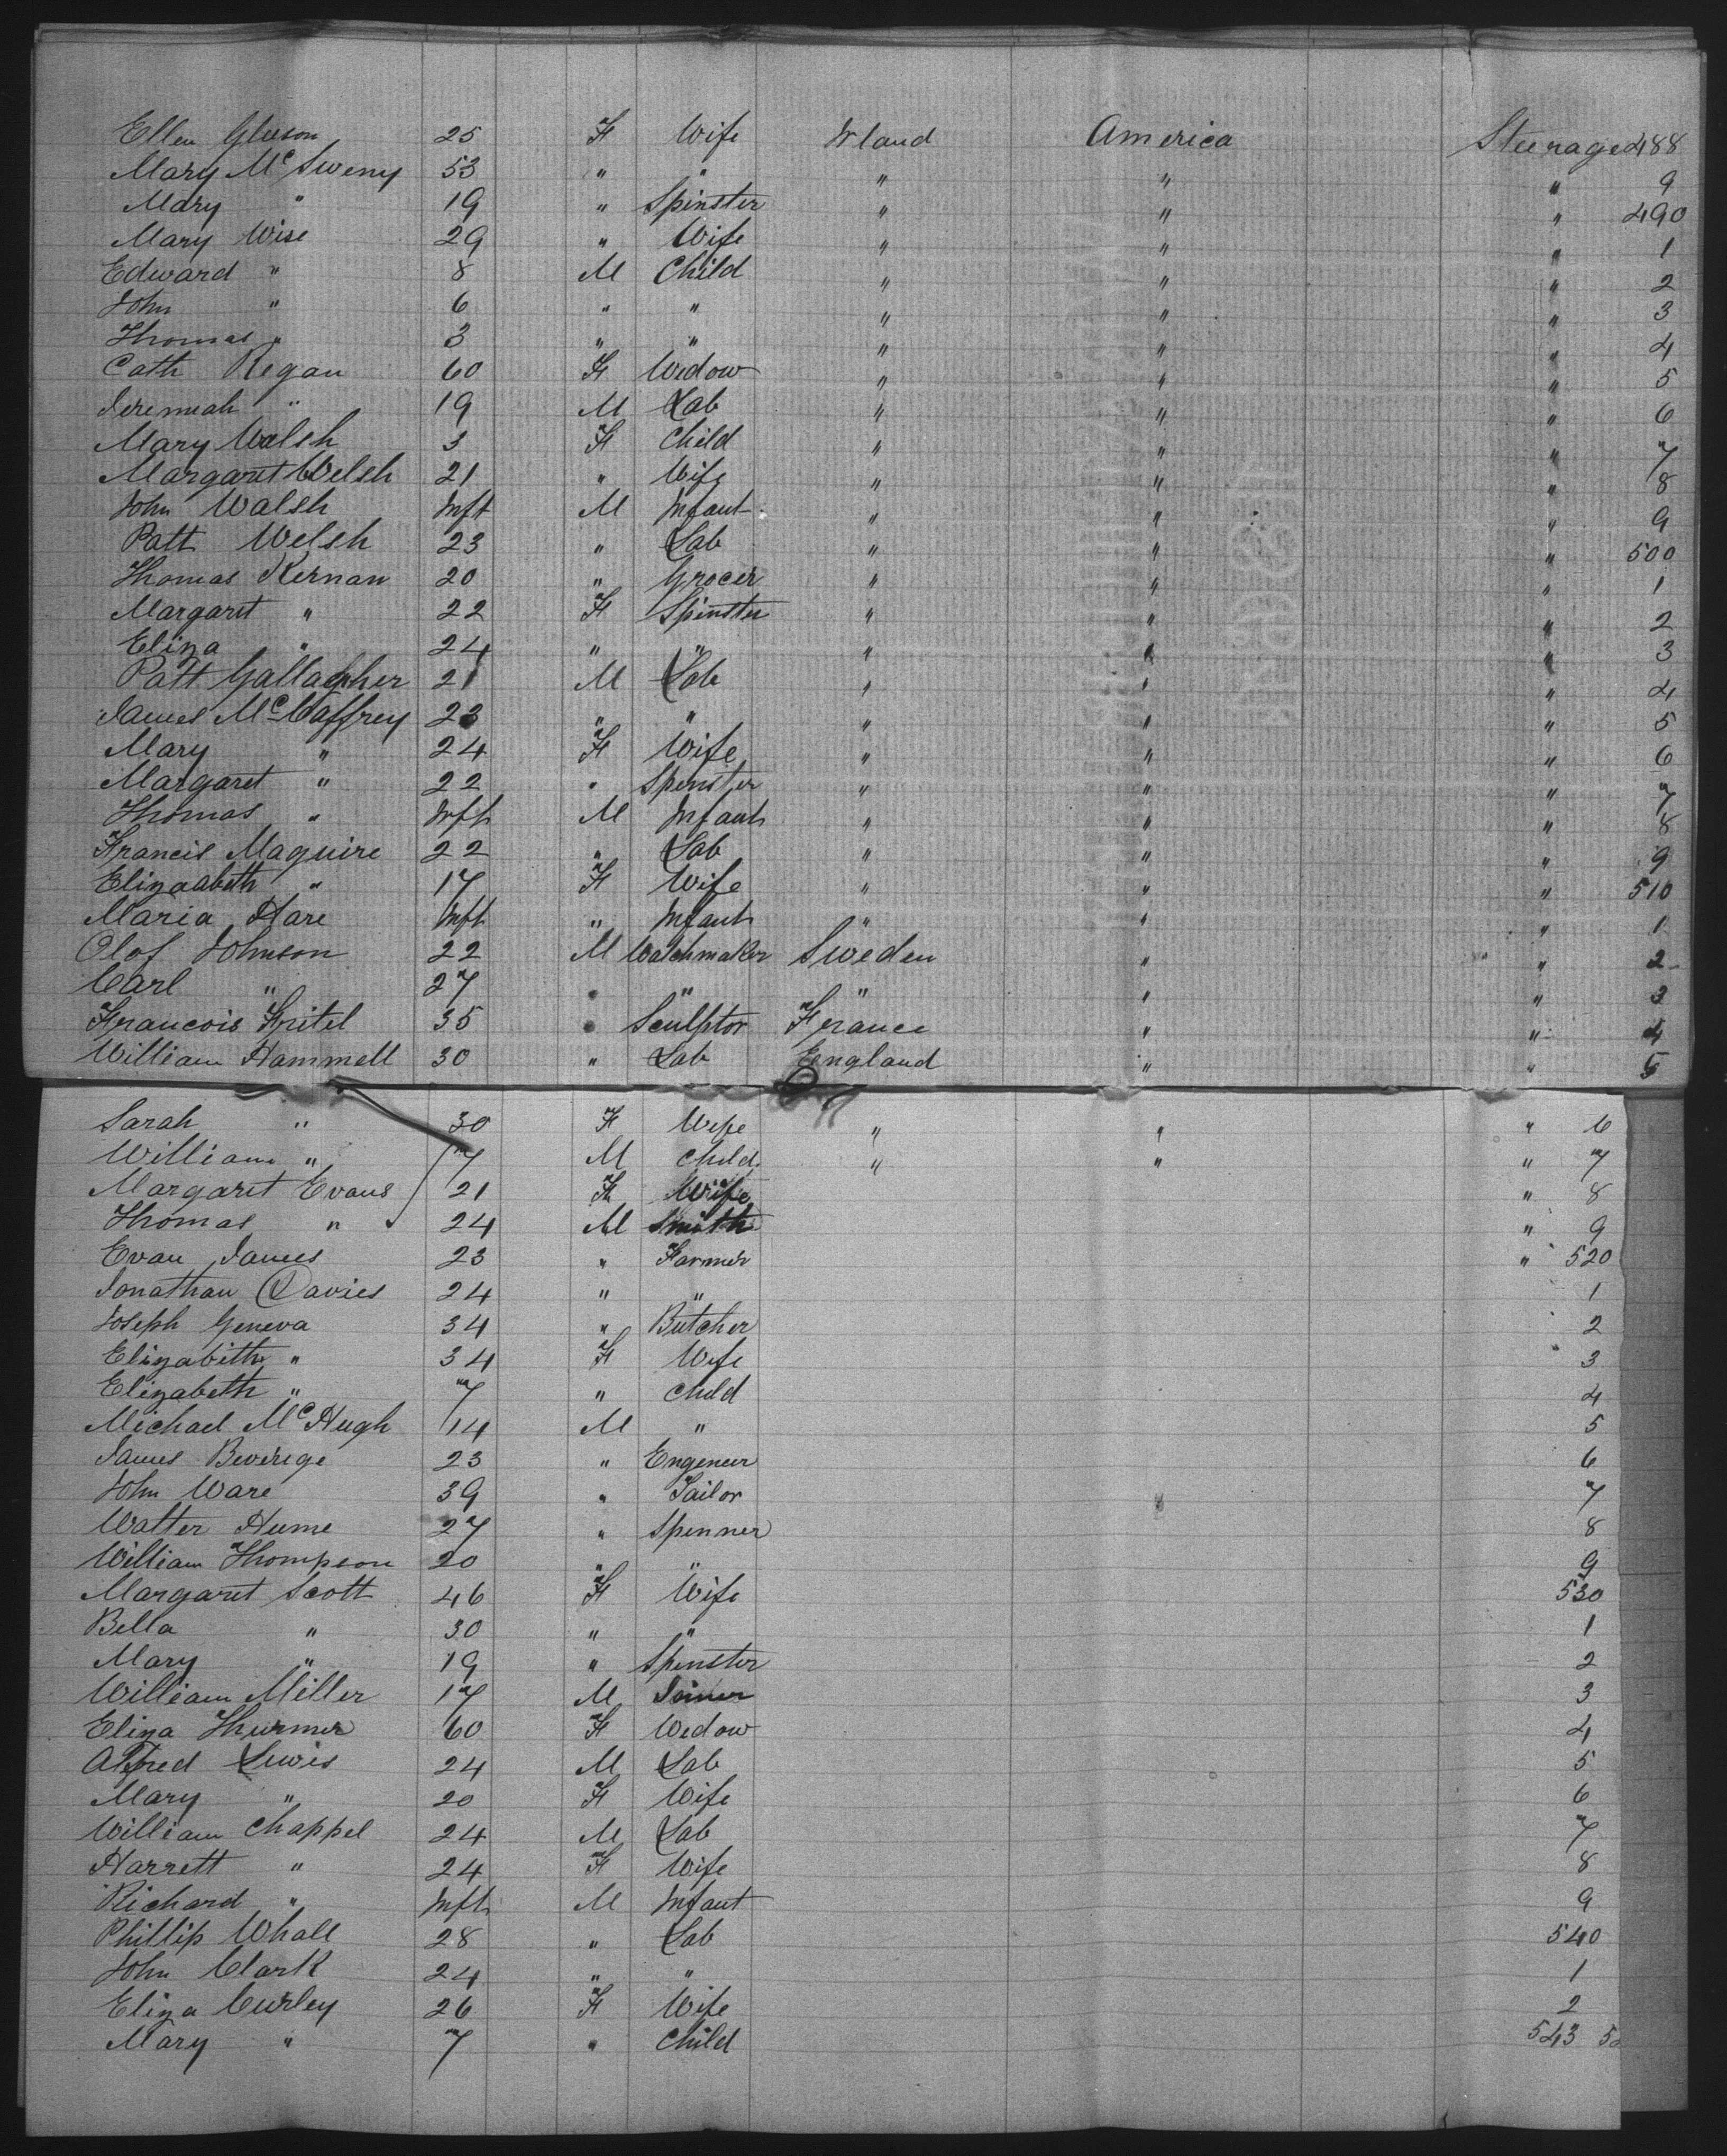 Ellen Gleeson 25 F Wife Irland America Steerage 488
Mary McSweny 53 " " " " " 9
Mary " 19 " Spinster " " " 490
Mary Wise 29 " Wife " " " 1
Edward " 8 M Child " " " 2
John " 6 " " " " " 3
Thomas " 3 " " " " " 4
Cath Regan 60 F Widow " " " 5
Jeremiah " 19 M Lab " " " 6
Mary Walsh 3 F Child " " " 7
Margaret Welsh 21 " Wife " " " 8
John Walsh Inft M Infant " " " 9
Patt Welsh 23 " Lab " " " 500
Thomas Kernan 20 " Grocer " " " 1
Margaret " 22 F Spinster " " " 2
Eliza " 24 " " " " " 3
Patt Gallagher 21 M Lab " " " 4
James McCaffrey 23 " " " " " 5
Mary " 24 F Wife " " " 6
Margaret " 22 " Spinster " " " 7
Thomas " Inft M Infant " " " 8
Francis Maguire 22 " Lab " " " 9
Elizaabeth " 17 F Wife " " " 510
Maria Hare Inft " Infant " " " 1
Olof Johnson 22 M Watchmaker Sweden " " 2
Carl " 27 " " " " " 3
Francois Fritel 35 " Sculptor France " " 4
William Hammell 30 " Lab England " " 5
Sarah " 30 F Wife " " " 6
William " 7 M Child " " " 7
Margaret Evans 21 F Wife " 8
Thomas " 24 M Smith " 9
Evan James 23 " Farmer " 520
Jonathan Davies 24 " " 1
Joseph Geneva 34 " Butcher 2
Elizabith " 34 F Wife 3
Elizabeth " 7 " Child 4
Michael McHugh 14 M " 5
James Beverige 23 " Engeneer 6
John Ware 39 " Tailor 7
Walter Hume 27 " Spinner 8
William Thompson 20 " " 9
Margaret Scott 46 F Wife 530
Bella " 30 " " 1
Mary " 19 " Spinster 2
William Miller 17 M Joiner 3
Eliza Thurmer 60 F Widow 4
Alfred Lewis 24 M Lab 5
Mary " 20 F Wife 6
William Chappel 24 M Lab 7
Harrett " 24 F Wife 8
Richard " Inft M Infant 9
Phillip Whall 28 " Lab 540
John Clark 24 " " 1
Eliza Curley 26 F Wife 2
Mary " 7 " Child 543